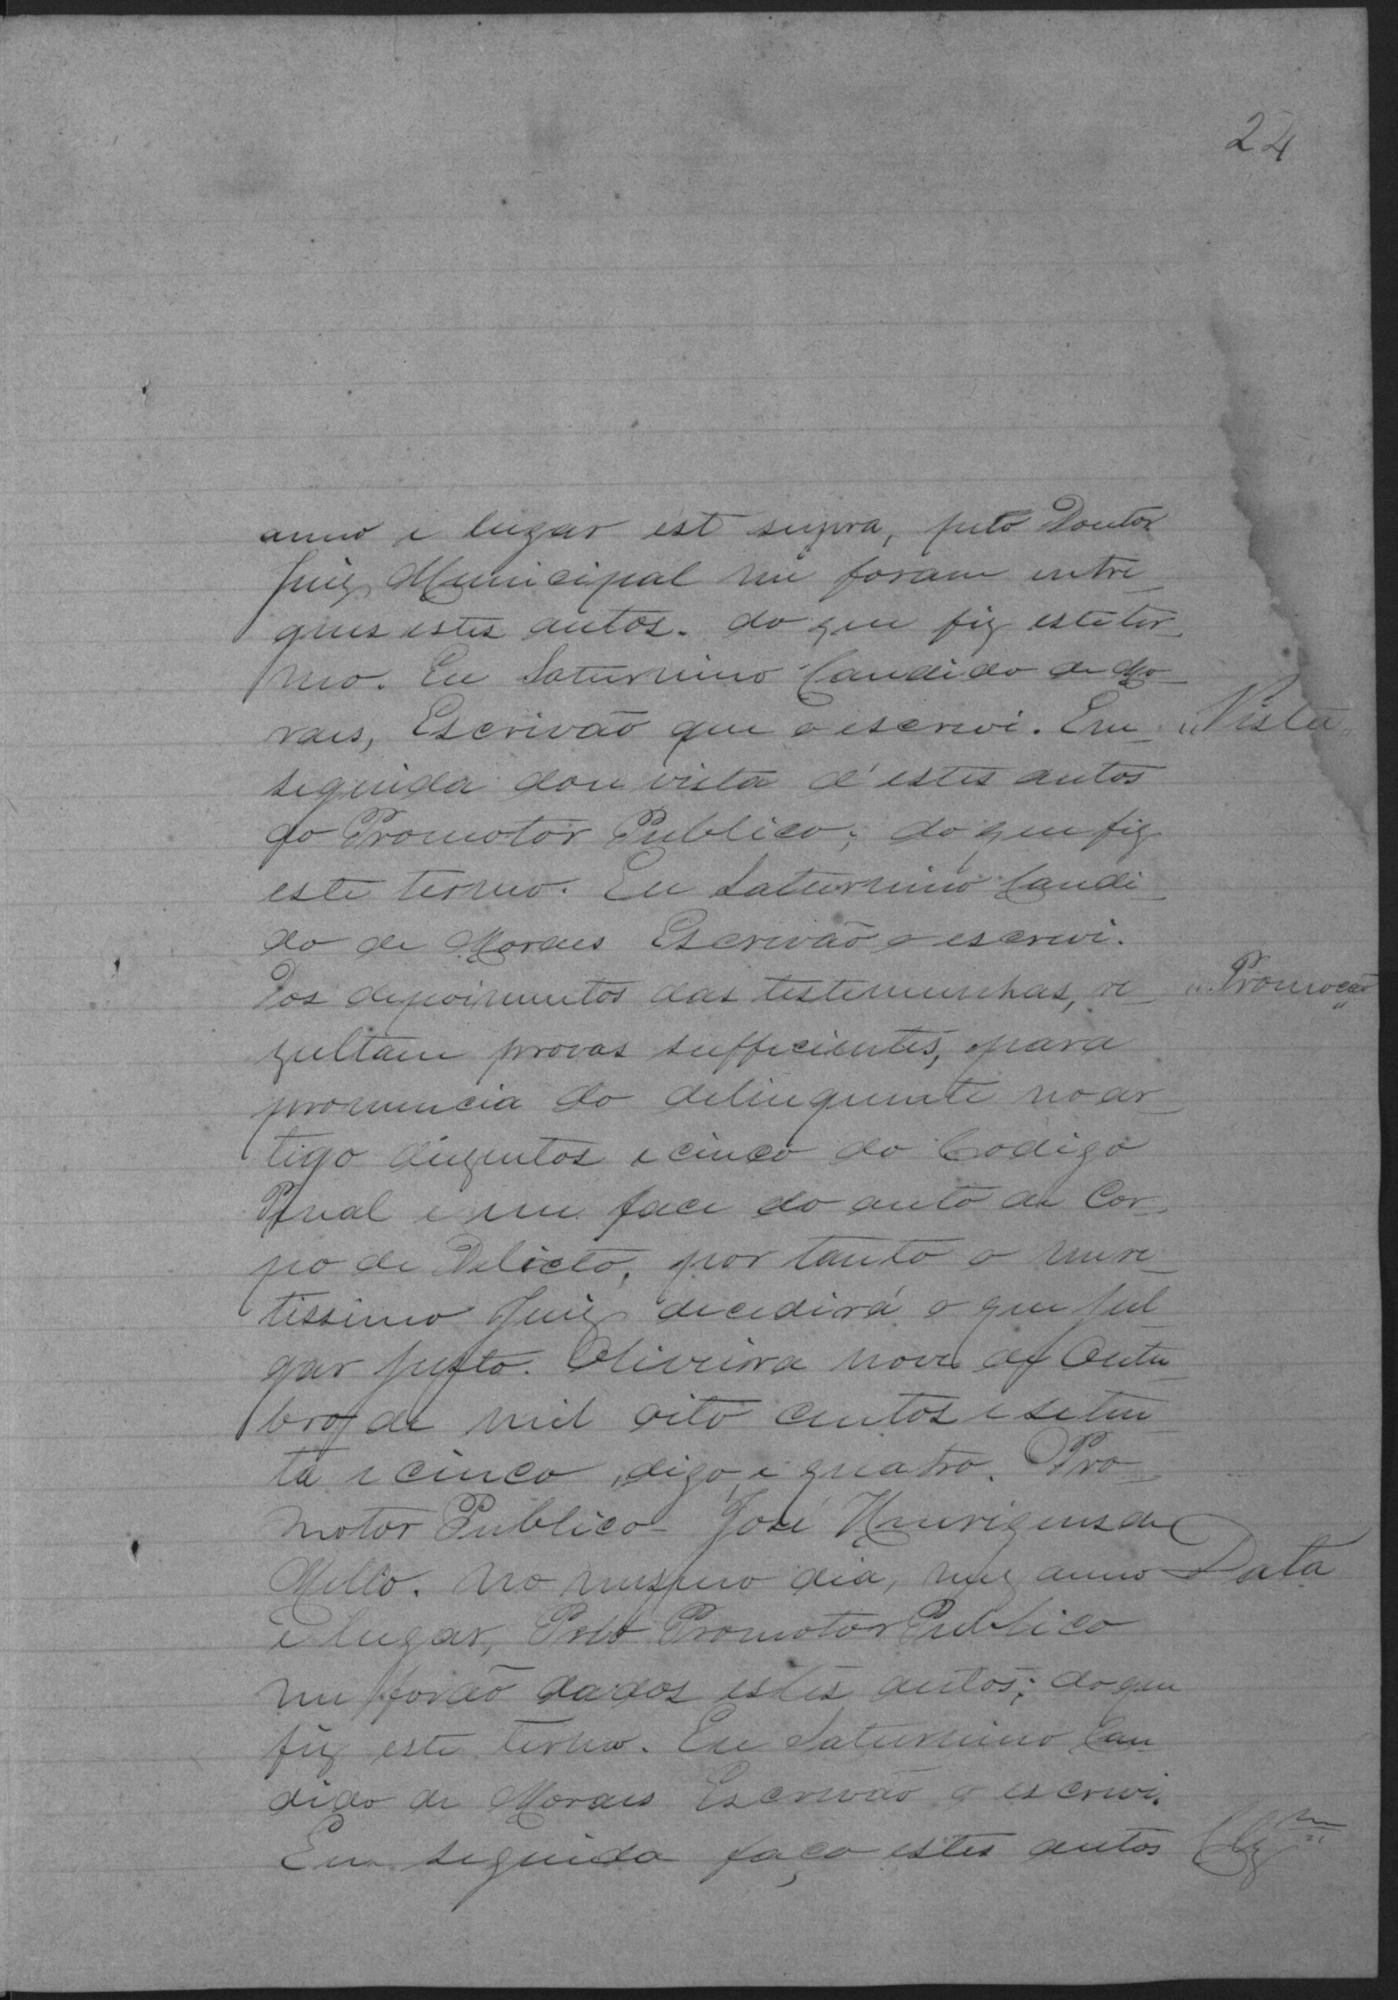 24
anno e lugar est supra, pelo Doutor
Juiz Municipal me foram entre
gues estes autos. do que fiz este ter
mo. Eu Saturnino Candido de Mo
raes, Escrivão que o escrevi. Em
"Vista"
seguida dou vista d'estes autos
ao Promotor Publico; do que fiz
este termo. Eu Saturnino Candi
do de Moraes Escrivão o escrevi.
Dos depoimentos das testemunhas, re
"Promoção"
zultam provas sufficientes, para
pronuncia do delinquente no ar
tigo duzentos e cinco do Codigo
Penal e em face do auto de Cor
po de Delicto, por tanto o mere
tissimo Juiz decedirá o que jul
gar justo. Oliveira nove de Outu
bro de mil oito centos e seten
ta e cinco, digo, e quatro. Pro
motor Publico - José Henriques de
Mello. No mesmo dia, mez anno
Data
e lugar, Pelo Promotor Publico
me forão dados estes autos; do que
fiz este termo. Eu Saturnino Can
dido de Moraes Escrivão o escrevi.
Em seguida faço estes autos
Clz.m